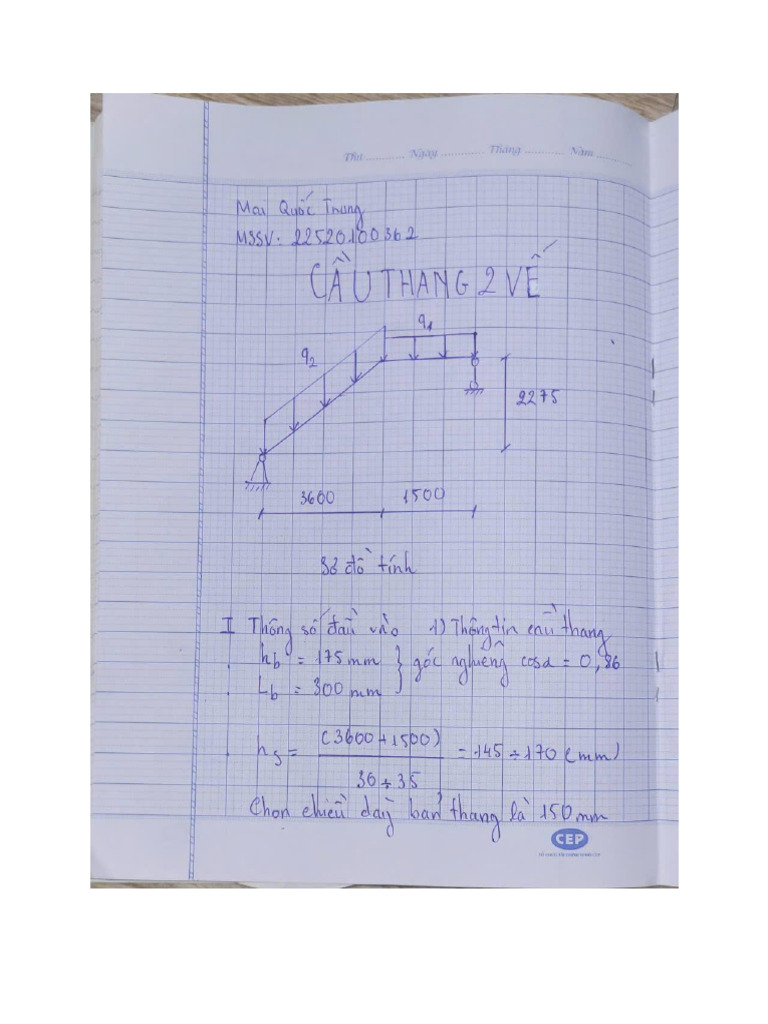 Thứ ............ Ngày ............ Tháng ............ Năm ............
Mai Quốc Trung
MSSV: 22520100362
CẦU THANG 2 VẾ
q1
q2
2275
3600 1500
Sơ đồ tính
I Thông số đầu vào 1) Thông tin cầu thang
hb = 175 mm } góc nghiêng cosα = 0,86
Lb = 300 mm
hs = (3600 + 1500) / 30 ÷ 35 = 145 ÷ 170 (mm)
Chọn chiều dày bản thang là 150 mm
CEP